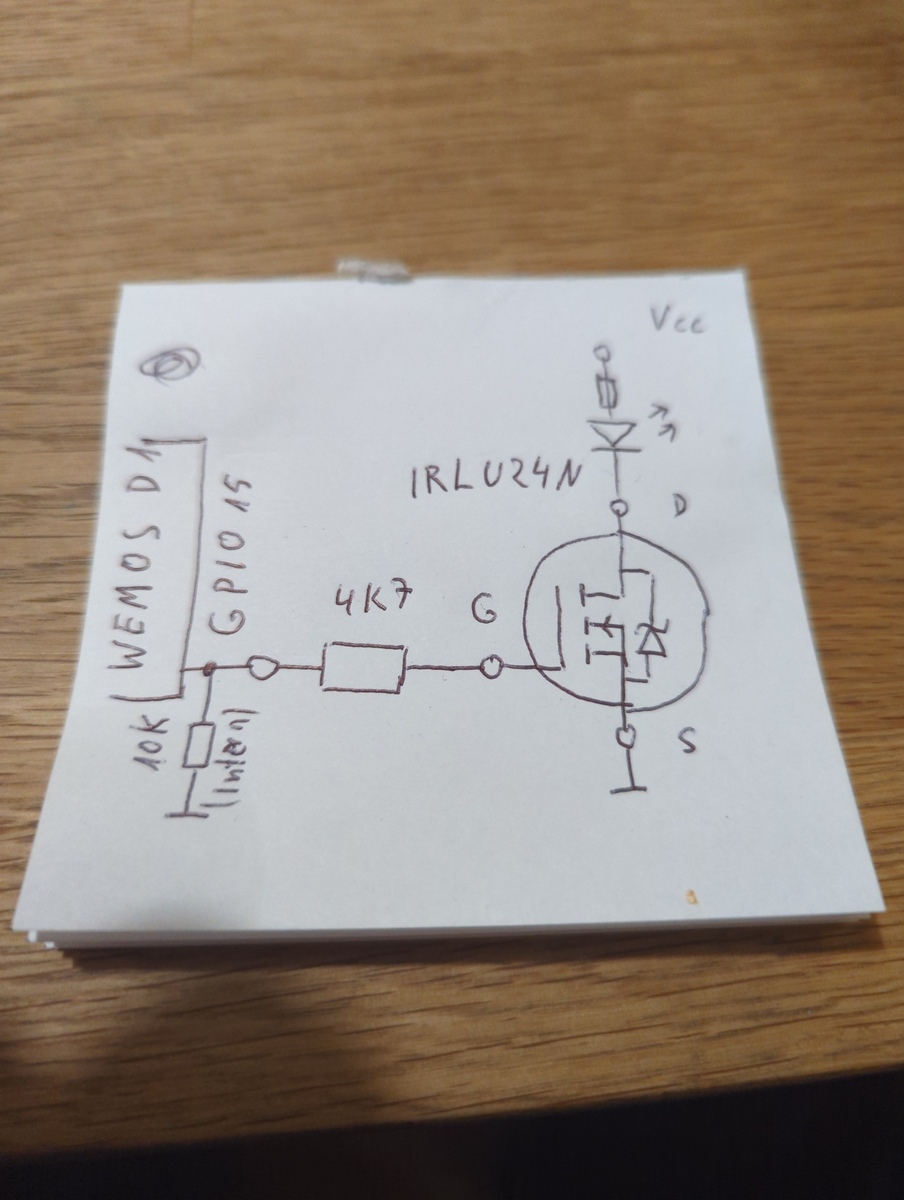 Vcc
IRLU24N
D
WEMOS D1
GPIO 15
4K7
G
10K
(intern)
S